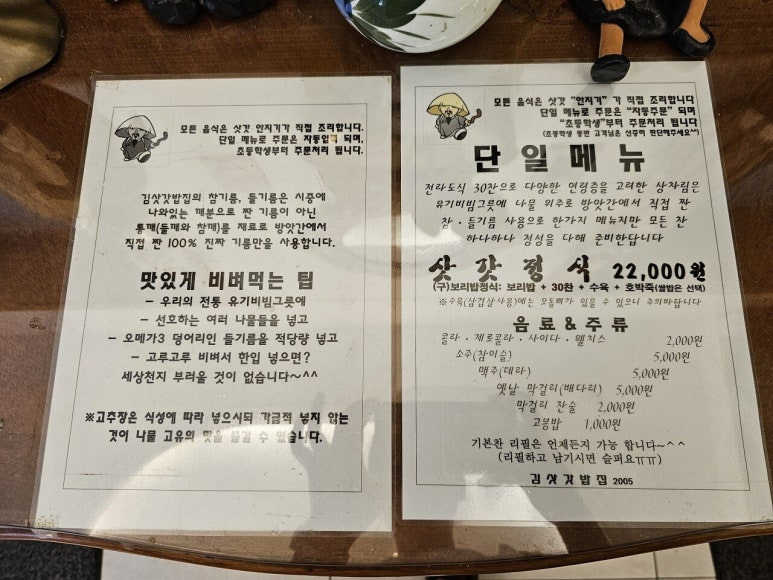 모든 음식은 삿갓 안지기가 직접 조리합니다.
단일 메뉴로 주문은 자동입력 되며,
초등학생부터 주문처리 됩니다.
김삿갓밥집의 참기름, 들기름은 시중에
나와있는 깨분으로 짠 기름이 아닌
통깨(들깨와 참깨)를 재료로 방앗간에서
직접 짠 100% 진짜 기름만을 사용합니다.
맛있게 비벼먹는 팁
- 우리의 전통 유기비빔그릇에
- 선호하는 여러 나물들을 넣고
- 오메가3 덩어리인 들기름을 적당량 넣고
- 고루고루 비벼서 한입 넣으면?
세상천지 부러울 것이 없습니다~^^
※고추장은 식성에 따라 넣으시되 가급적 넣지 않는
것이 나물 고유의 맛을 즐길 수 있습니다.
모든 음식은 삿갓 "안지기" 가 직접 조리합니다
단일 메뉴로 주문은 "자동주문" 되며
"초등학생"부터 주문처리 됩니다
(초등학생 동반 고객님은 신중히 판단해주세요^^)
단일메뉴
전라도식 30찬으로 다양한 연령층을 고려한 상차림은
유기비빔그릇에 나물 위주로 방앗간에서 직접 짠
참·들기름 사용으로 한가지 메뉴지만 모든 찬
하나하나 정성을 다해 준비한답니다
삿갓정식 22,000원
(구)보리밥정식: 보리밥 + 30찬 + 수육 + 호박죽(쌀밥은 선택)
※수육(삼겹살사용)에는 오돌뼈가 있을 수 있으니 주의바랍니다
음료&주류
콜라·제로콜라·사이다·웰치스 2,000원
소주(참이슬) 5,000원
맥주(테라) 5,000원
옛날 막걸리(배다리) 5,000원
막걸리 잔술 2,000원
고봉밥 1,000원
기본찬 리필은 언제든지 가능 합니다~^^
(리필하고 남기시면 슬퍼요ㅠㅠ)
김삿갓밥집 2005